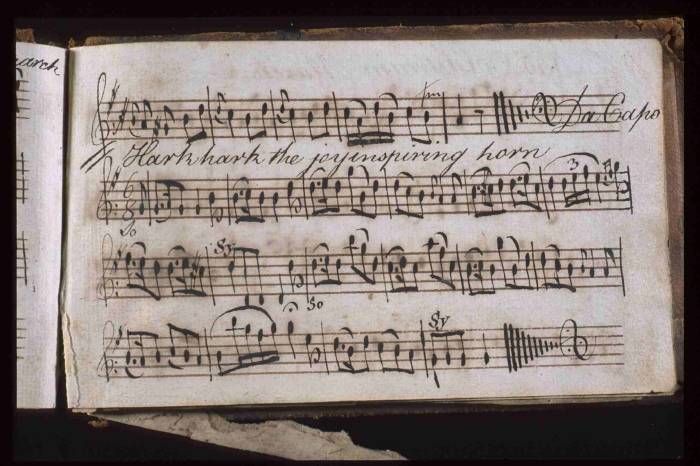 arch
tr
Da Capo
Hark hark the joyinspiring horn
6
8
3
So
Sy
So
Sy